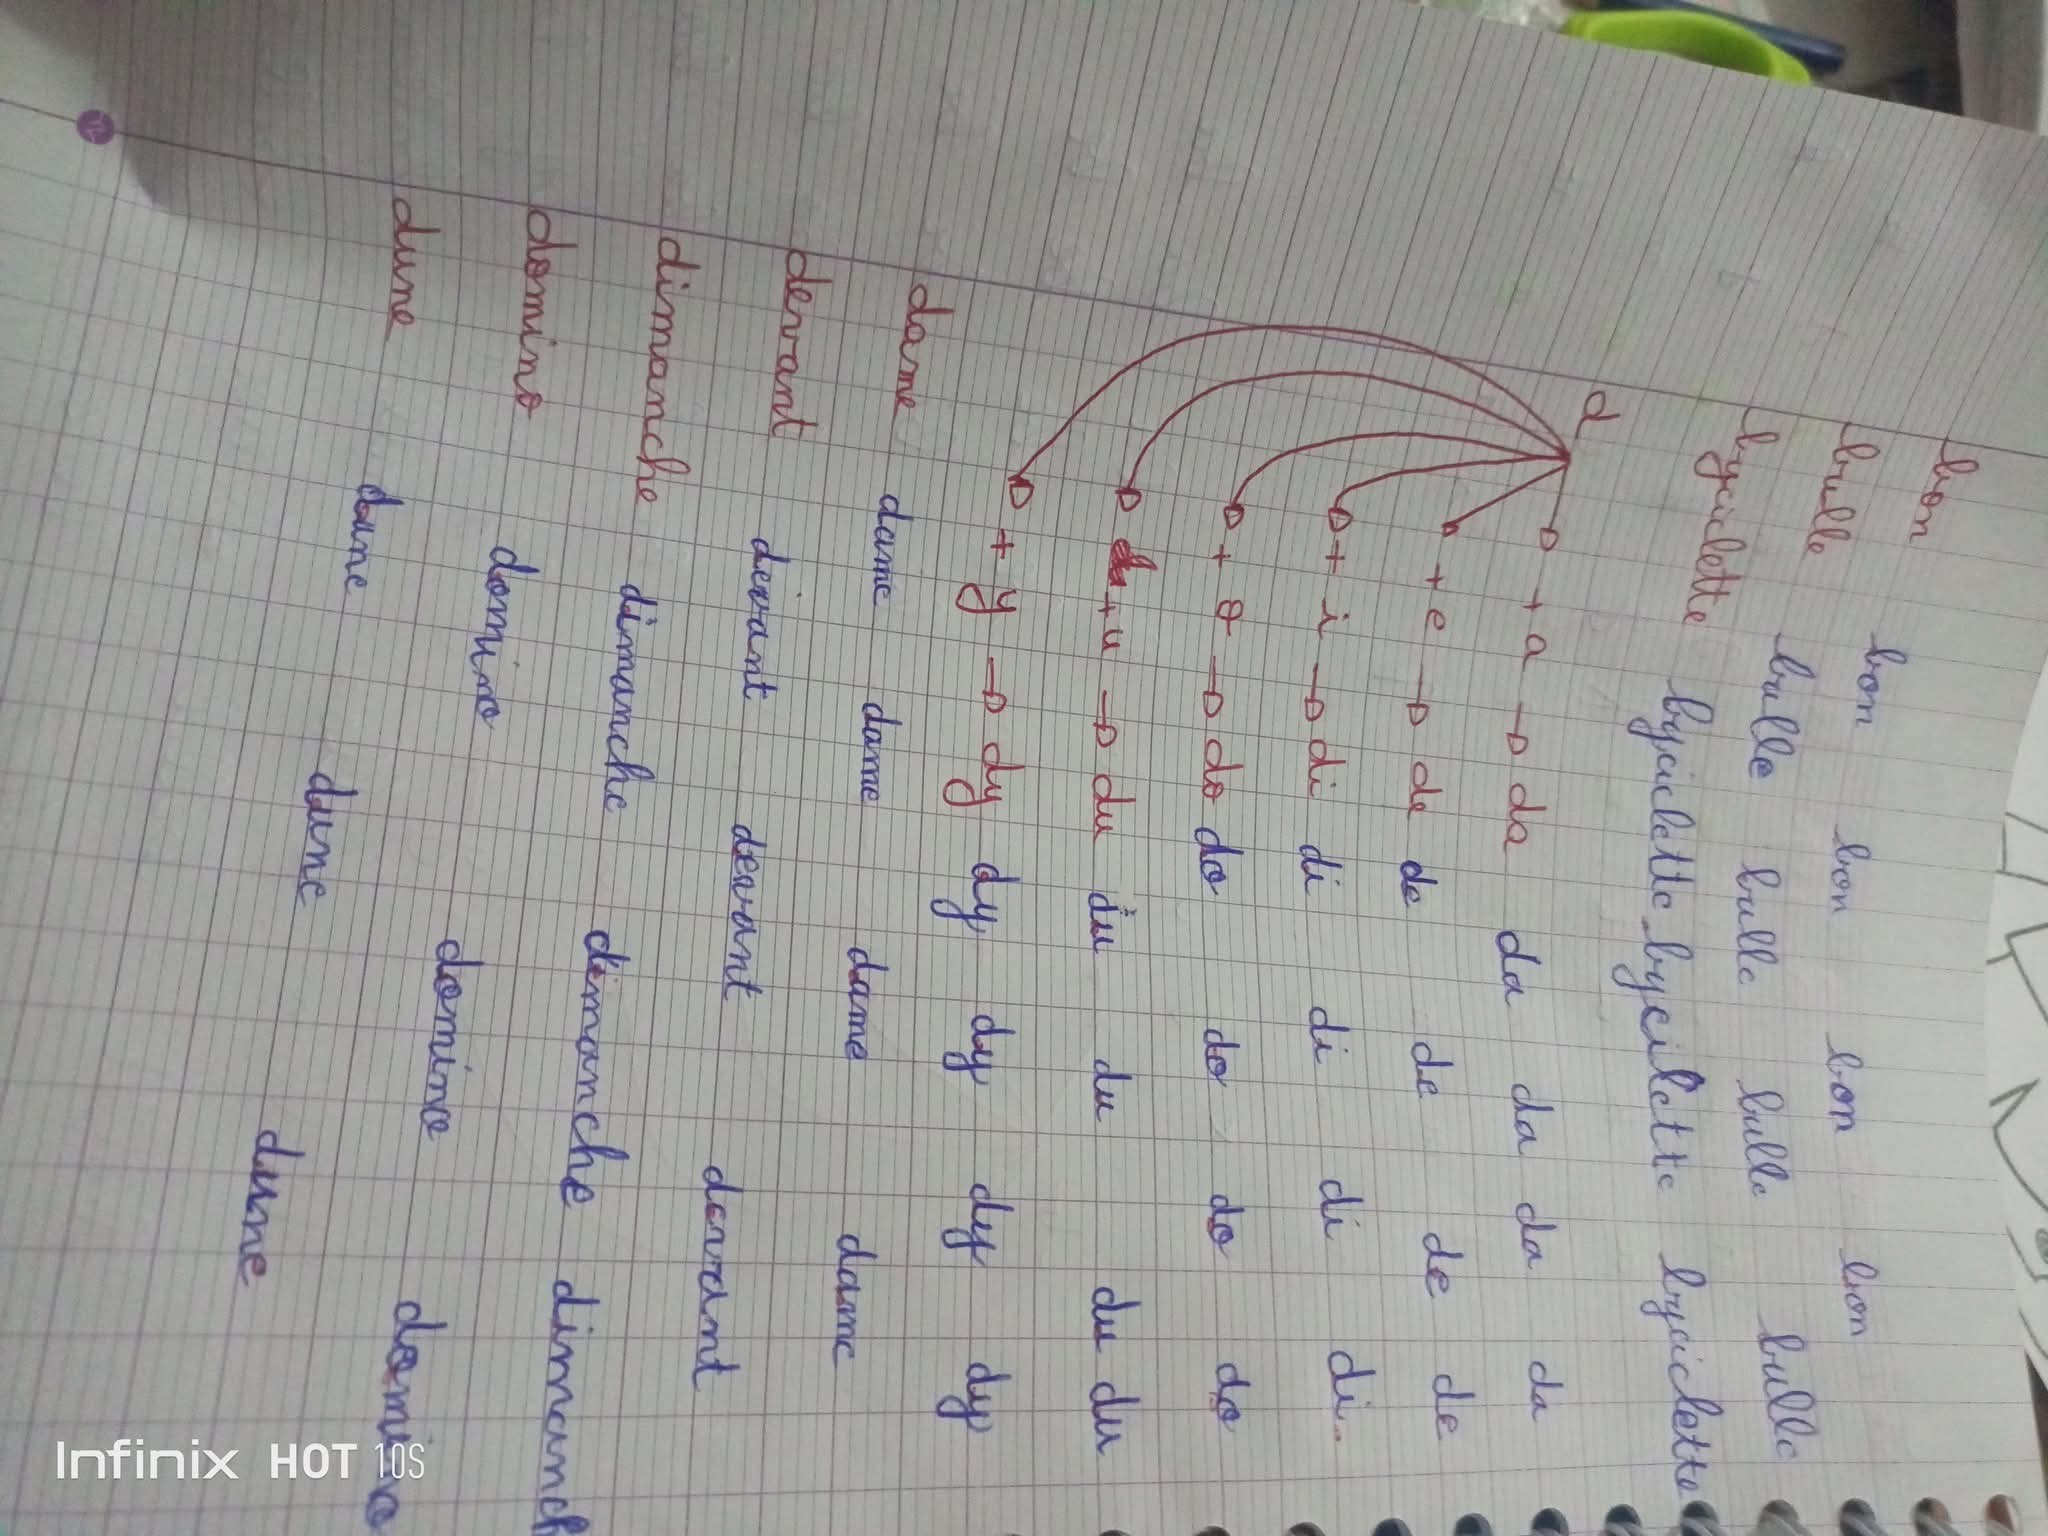 bon bon bon bon bon
bulle bulle bulle bulle bulle
byciclette byciclette byciclette byciclette
d
+ a → da da da da da
+ e → de de de de de
+ i → di di di di di
+ o → do do do do do
+ u → du du du du du
+ y → dy dy dy dy dy
dame dame dame dame dame
devant devant devant devant
dimanche dimanche dimanche dimanch
domino domino domino domino
dune dune dune dune
Infinix HOT 10S